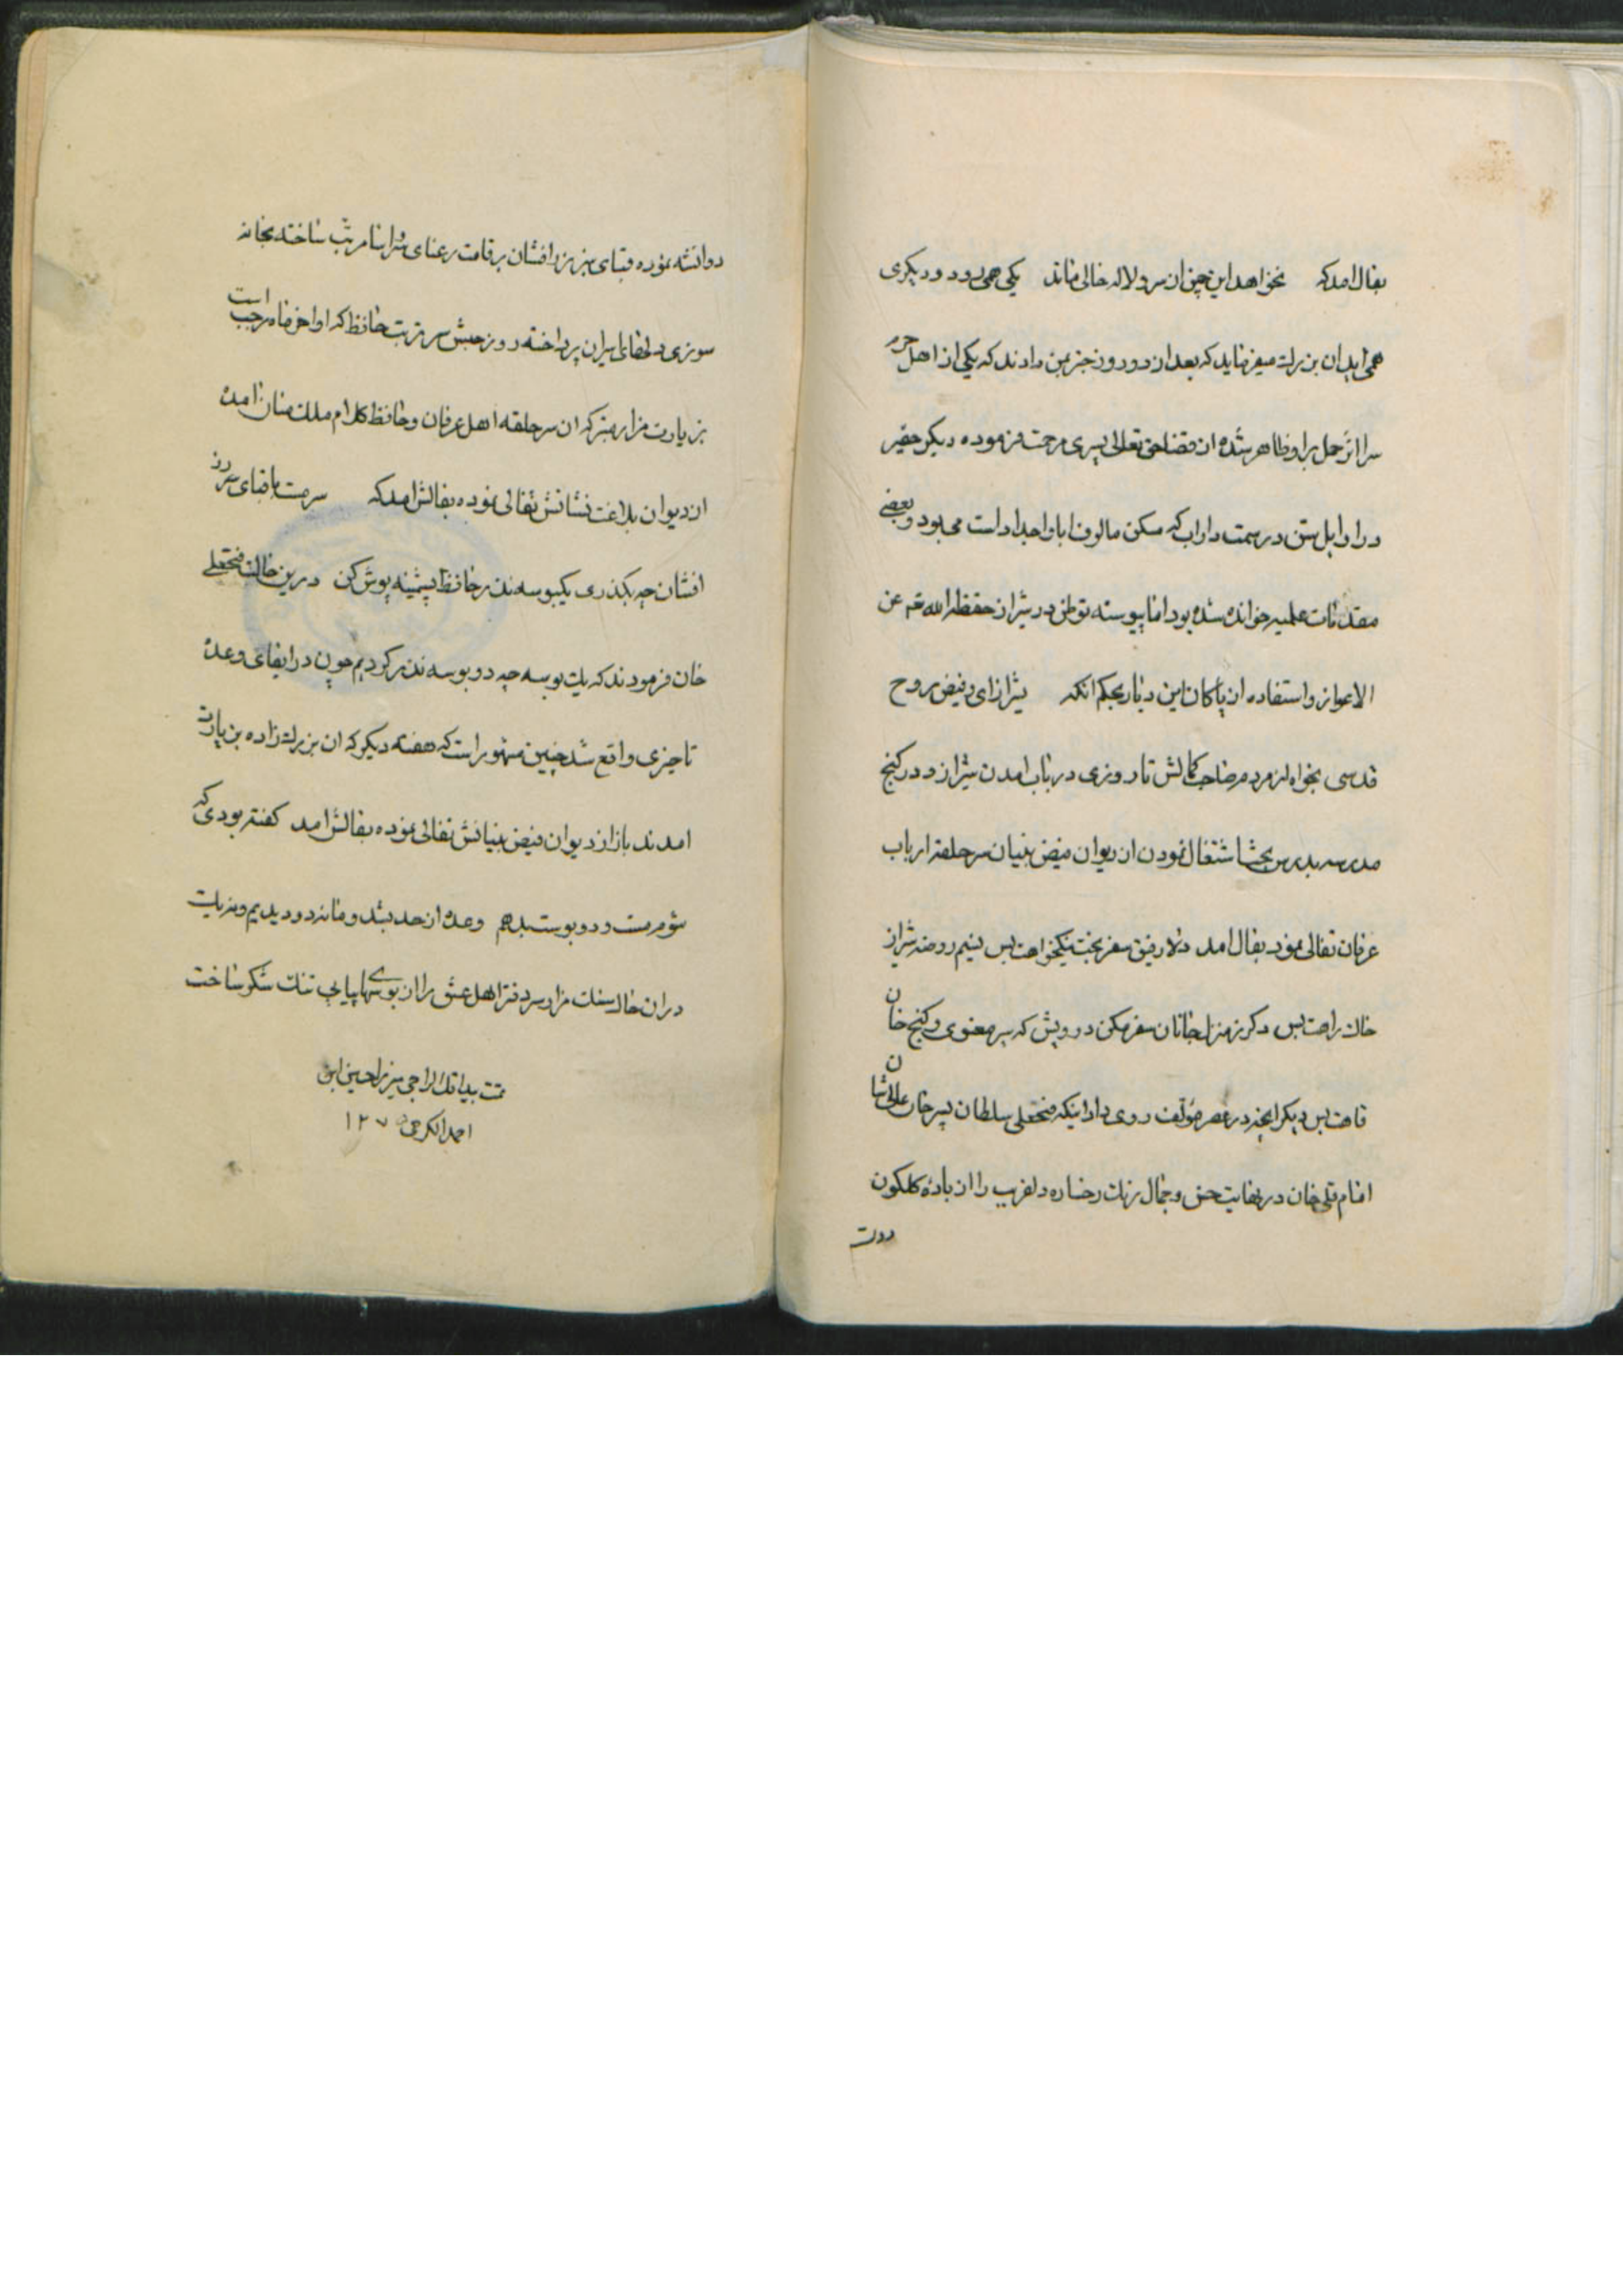 بفال امد که نخواهد این چمن از سرو و لاله خالی ماند یکی همی رود و دیگری
همی اید ان بزرك میفرماید که بعد از دو روز خبر بمن دادند که یکی از اهل حرم
سرا اثر حمل بر او ظاهر شده از فضل حق تعالی پسری مرحمت فرموده دیگر حقیر
در اوایل سن در سمت داراب که مسکن مالوف ابا و اجداد است می بود و بعضی
مقدمات علمیه خوانده شده بود اما پیوسته توطن در شیراز حفظه الله تع عن
الاعواز و استفاده از پاکان این دیار بحکم انکه شیراز ای و فیض روح
قدسی بخواه از مردم صاحب کمالش تا روزی در باب امدن شیراز و در کنج
مدرسه بدرس بحث اشتغال نمودن از دیوان فیض بنیان سر حلقه ارباب
عرفان تفالی نمود بفال امد دلا رفیق سفر بخت نیکخواهت بس نسیم روضه شیراز
خاك راهت بس دکر ز منزل جانان سفر مکن درویش که سیر معنوی و کنج خان
قاهت بس دیکر انچه در عصر مؤلف روی داد اینکه فتحعلی سلطان پسر خان عالی شان
امام قلی خان در نهایت حسن و جمال رنك رخساره دلفریب را از باده کلکون
دوات
دواتشه نموده قبای سبز زر افشان بر قامت رعنای سراسا مرتب ساخته بخانه
سوزی دلهای ایران پرداخته روز حبش سر تربت حافظ که اواخر ماه رجب است
بزیارت مزار متبرکه ان سر حلقه اهل عرفان و حافظ کلام ملك منان امده
از دیوان بلاغت نشانش تفالی نموده بفالش امد که سرمست با قبای زر
افشان چه بکذری یکبوسه نذر حافظ پشمینه پوش کن درین حالت فتحعلی
خان فرمودند که یك بوسه چه دو بوسه نذر کردیم چون در ایفای وعده
تاخیری واقع شد چنین مشهور است که هفته دیکر که ان بزرك زاده بزیارت
امدند باز از دیوان فیض بنیانش تفالی نموده بفالش امد کفته بودی که
شوم مست و دو بوست بدهم وعده از حد بشد و ما نه دو دیدیم و نه یك
در ان حال سنك مزار سر دفتر اهل عشق را از بوسهای پیاپی تنك شکر ساخت
تمت بید اقل الراجی میرزا حسین ابن
احمد الکرجی ۱۲۷۵